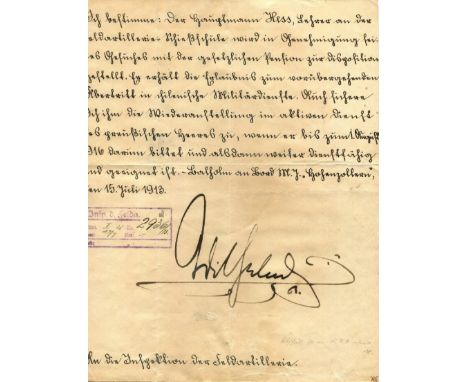 Ich bestimme: Der Hauptmann Hess, Lehrer an der
Feldartillerie-Schießschule wird in Genehmigung sei-
nes Gesuches mit der gesetzlichen Pension zur Disposition
gestellt. Er erhält die Erlaubnis zum vorübergehenden
Übertritt in chilenische Militärdienste. Auch sichere
Ich ihm die Wiederanstellung im aktiven Dienst
des preußischen Heeres zu, wenn er bis zum 1. August
1916 darum bittet und alsdann weiter dienstfähig
und geeignet ist. - Balholm an Bord M.J. „Hohenzollern“,
den 15. Juli 1913.
Insp. d. Felda.
293
Wilhelm
An die Inspektion der Feldartillerie.